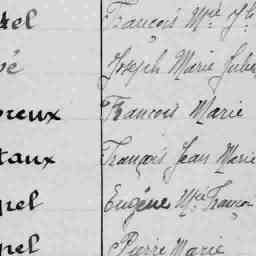 rel François Mie J
pé Joseph Marie Jules
reux François Marie
taux François Jean Marie
pel Eugène Mie François
pel Pierre Marie